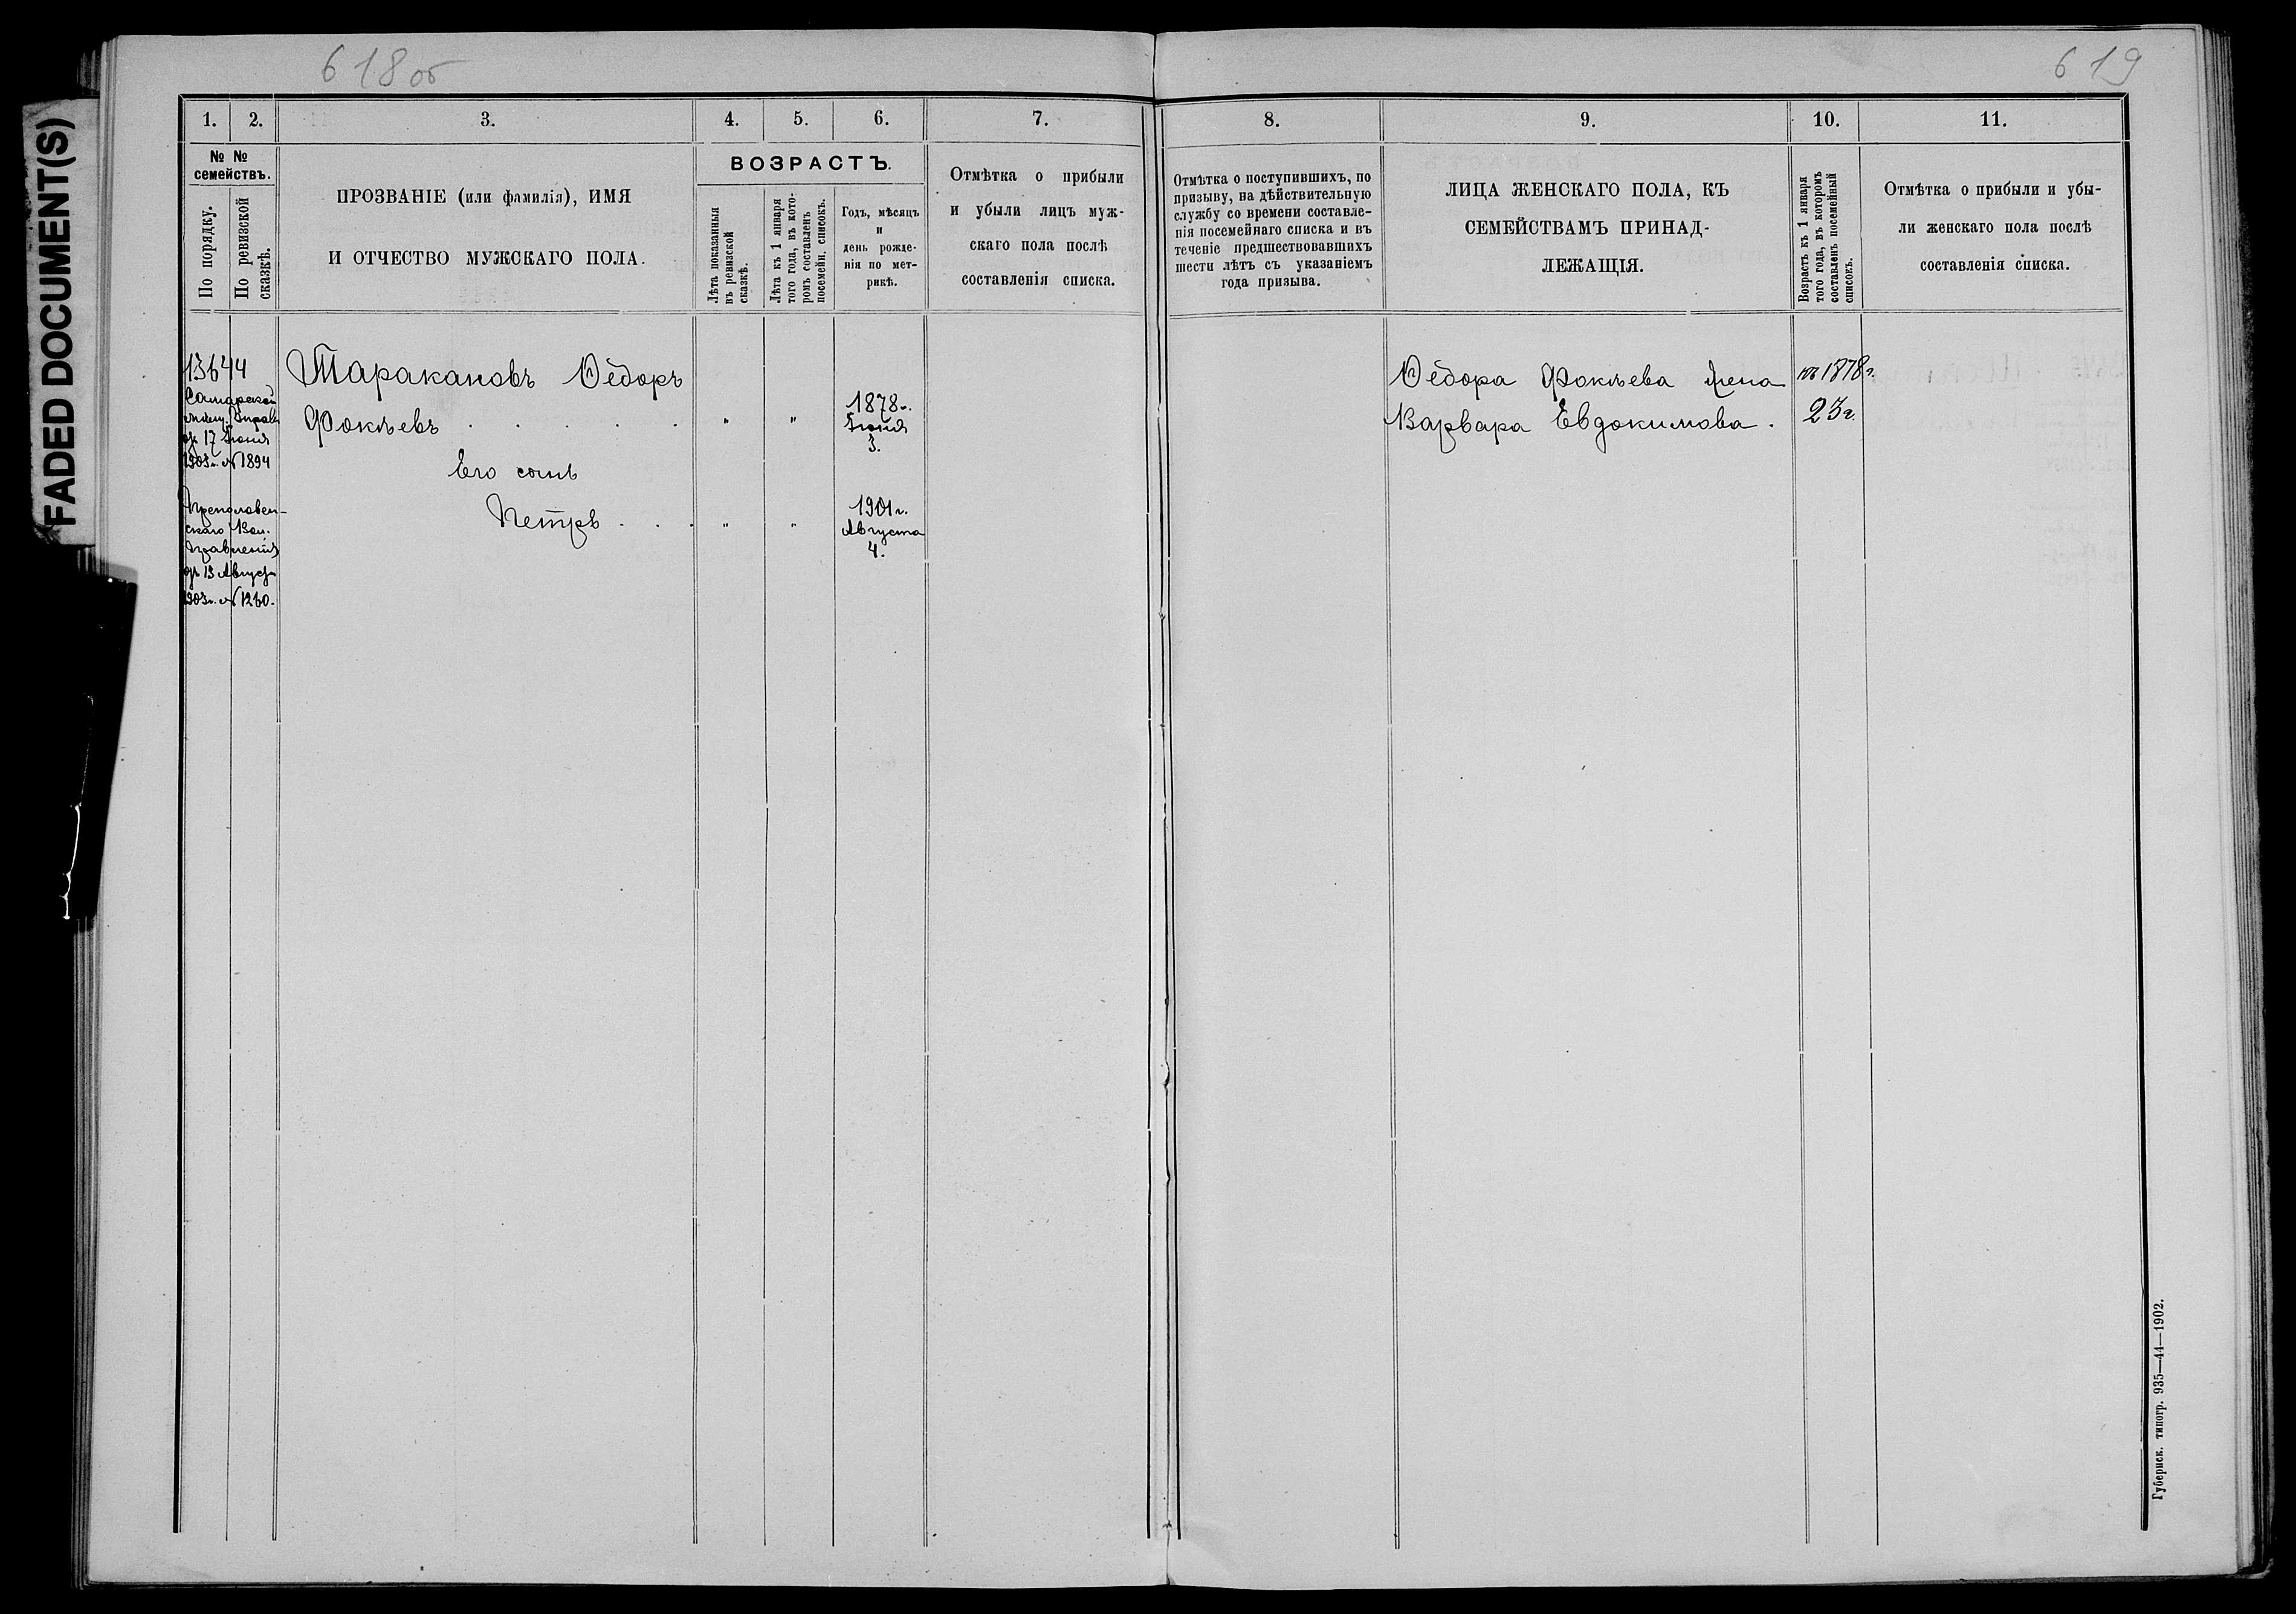 618 об
619
FADED DOCUMENT(S)
1.
2.
3.
4.
5.
6.
7.
8.
9.
10.
11.
№ №
семействъ.
По порядку.
По ревизской
сказкѣ.
ПРОЗВАНІЕ (или фамилія), ИМЯ
И ОТЧЕСТВО МУЖСКАГО ПОЛА.
ВОЗРАСТЪ.
Лѣта показанныя
въ ревизской
сказкѣ.
Лѣта къ 1 января
того года, въ кото-
ромъ составленъ
посемейн. списокъ.
Годъ, мѣсяцъ
и
день рожде-
нія по мет-
рикѣ.
Отмѣтка о прибыли
и убыли лицъ муж-
скаго пола послѣ
составленія списка.
Отмѣтка о поступившихъ, по
призыву, на дѣйствительную
службу со времени составле-
нія посемейнаго списка и въ
теченіе предшествовавшихъ
шести лѣтъ съ указаніемъ
года призыва.
ЛИЦА ЖЕНСКАГО ПОЛА, КЪ
СЕМЕЙСТВАМЪ ПРИНАД-
ЛЕЖАЩІЯ.
Возрастъ къ 1 января
того года, въ которомъ
составленъ посемейный
списокъ.
Отмѣтка о прибыли и убы-
ли женскаго пола послѣ
составленія списка.
13644
Самарской
мѣщ. Управы
отъ 17 Іюня
1903 г. № 1894
Преполовен-
скаго Вол.
Правленія
отъ 13 Август
1903 г. № 1260.
Таракановъ Ѳедоръ
Фокѣевъ . . . . . .
Его сынъ
Петръ . . .
" "
1878 г.
Іюня
3.
" "
1901 г.
Августа
4.
Ѳедора Фокѣева жена
Варвара Евдокимова .
къ 1878 г.
23 г.
Губернск. типогр. 935—44—1902.